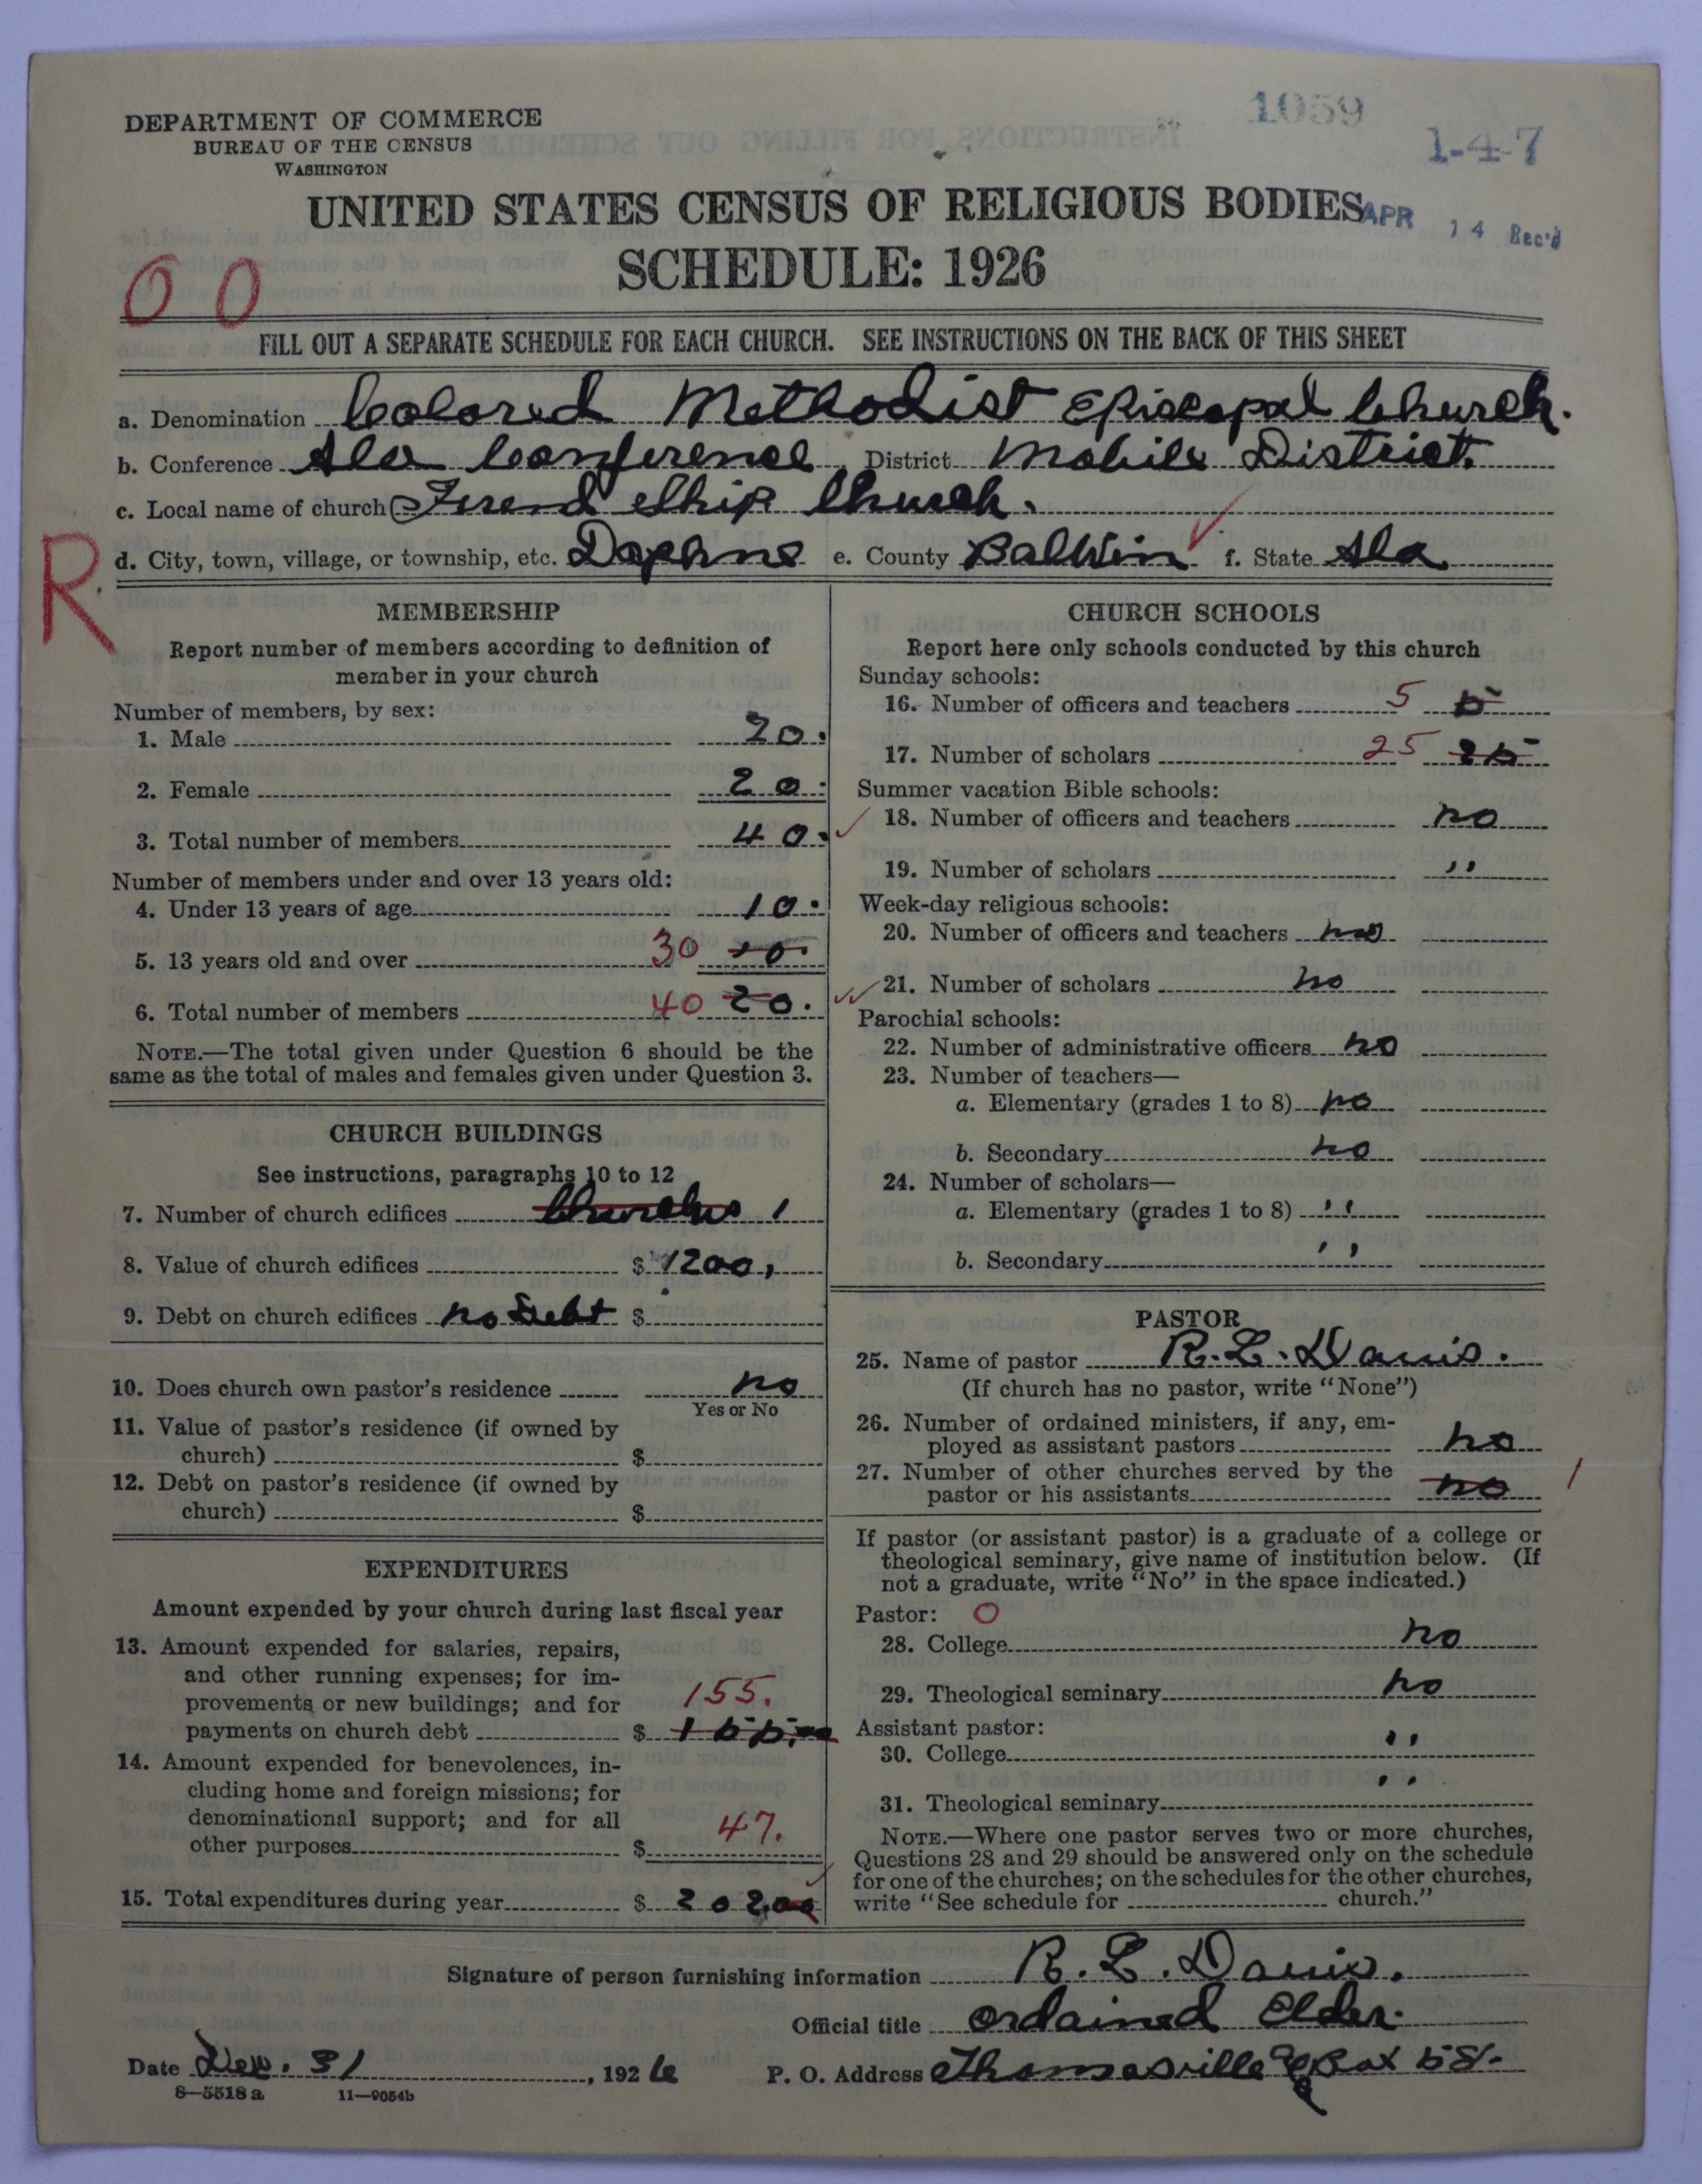 DEPARTMENT OF COMMERCE
BUREAU OF THE CENSUS
WASHINGTON
1059
1-4-7
UNITED STATES CENSUS OF RELIGIOUS BODIES
APR 14 Rec'd
SCHEDULE: 1926
00
FILL OUT A SEPARATE SCHEDULE FOR EACH CHURCH. SEE INSTRUCTIONS ON THE BACK OF THIS SHEET
a. Denomination Colored Methodist Episcopal Church.
b. Conference Ala Conference District Mobile District.
c. Local name of church Frend Ship Church.
R
d. City, town, village, or township, etc. Daphne e. County Baldwin f. State Ala
MEMBERSHIP
Report number of members according to definition of
member in your church
Number of members, by sex:
1. Male 20.
2. Female 20.
3. Total number of members 40.
Number of members under and over 13 years old:
4. Under 13 years of age 10.
5. 13 years old and over 30 10.
6. Total number of members 40 20.
NOTE.—The total given under Question 6 should be the
same as the total of males and females given under Question 3.
CHURCH BUILDINGS
See instructions, paragraphs 10 to 12
7. Number of church edifices Churches 1
8. Value of church edifices $ 1200,
9. Debt on church edifices no Debt $
10. Does church own pastor's residence no
Yes or No
11. Value of pastor's residence (if owned by
church) $
12. Debt on pastor's residence (if owned by
church) $
EXPENDITURES
Amount expended by your church during last fiscal year
13. Amount expended for salaries, repairs,
and other running expenses; for im-
provements or new buildings; and for 155.
payments on church debt $ 155.00
14. Amount expended for benevolences, in-
cluding home and foreign missions; for
denominational support; and for all 47.
other purposes $
15. Total expenditures during year $ 202.00
CHURCH SCHOOLS
Report here only schools conducted by this church
Sunday schools:
16. Number of officers and teachers 5 5
17. Number of scholars 25 25
Summer vacation Bible schools:
18. Number of officers and teachers no
19. Number of scholars ''
Week-day religious schools:
20. Number of officers and teachers no
21. Number of scholars no
Parochial schools:
22. Number of administrative officers no
23. Number of teachers—
a. Elementary (grades 1 to 8) no
b. Secondary no
24. Number of scholars—
a. Elementary (grades 1 to 8) ''
b. Secondary ''
PASTOR
25. Name of pastor R. L. Davis.
(If church has no pastor, write "None")
26. Number of ordained ministers, if any, em-
ployed as assistant pastors no
27. Number of other churches served by the
pastor or his assistants no 1
If pastor (or assistant pastor) is a graduate of a college or
theological seminary, give name of institution below. (If
not a graduate, write "No" in the space indicated.)
Pastor: 0
28. College no
29. Theological seminary no
Assistant pastor:
30. College ''
31. Theological seminary ''
NOTE.—Where one pastor serves two or more churches,
Questions 28 and 29 should be answered only on the schedule
for one of the churches; on the schedules for the other churches,
write "See schedule for church."
Signature of person furnishing information R. L. Davis.
Official title ordained Elder.
Date Dec. 31, 1926 P. O. Address Thomasville Box 58.
8—5518 a 11—9054b